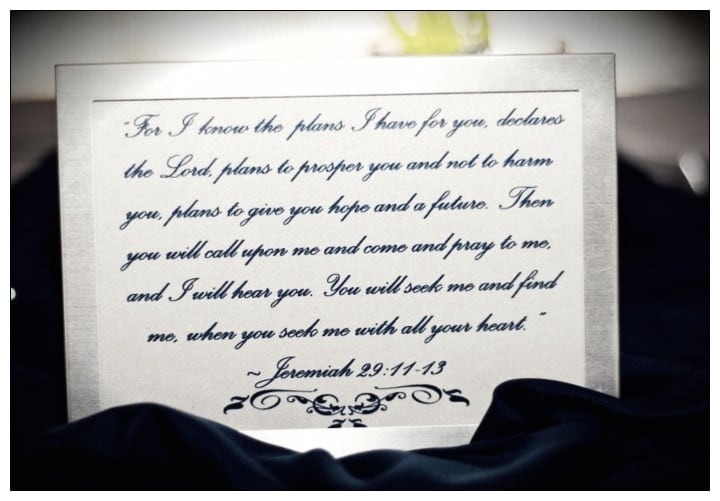 "For I know the plans I have for you, declares
the Lord, plans to prosper you and not to harm
you, plans to give you hope and a future. Then
you will call upon me and come and pray to me,
and I will hear you. You will seek me and find
me, when you seek me with all your heart."
~ Jeremiah 29:11-13